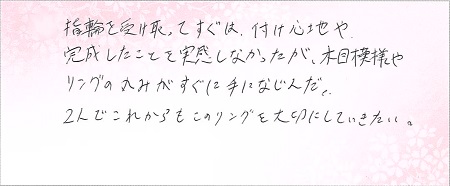 指輪を受け取ってすぐは、付け心地や
完成したことを実感しなかったが、木目模様や
リングの丸みがすぐに手になじんだ。
2人でこれからもこのリングを大切にしていきたい。